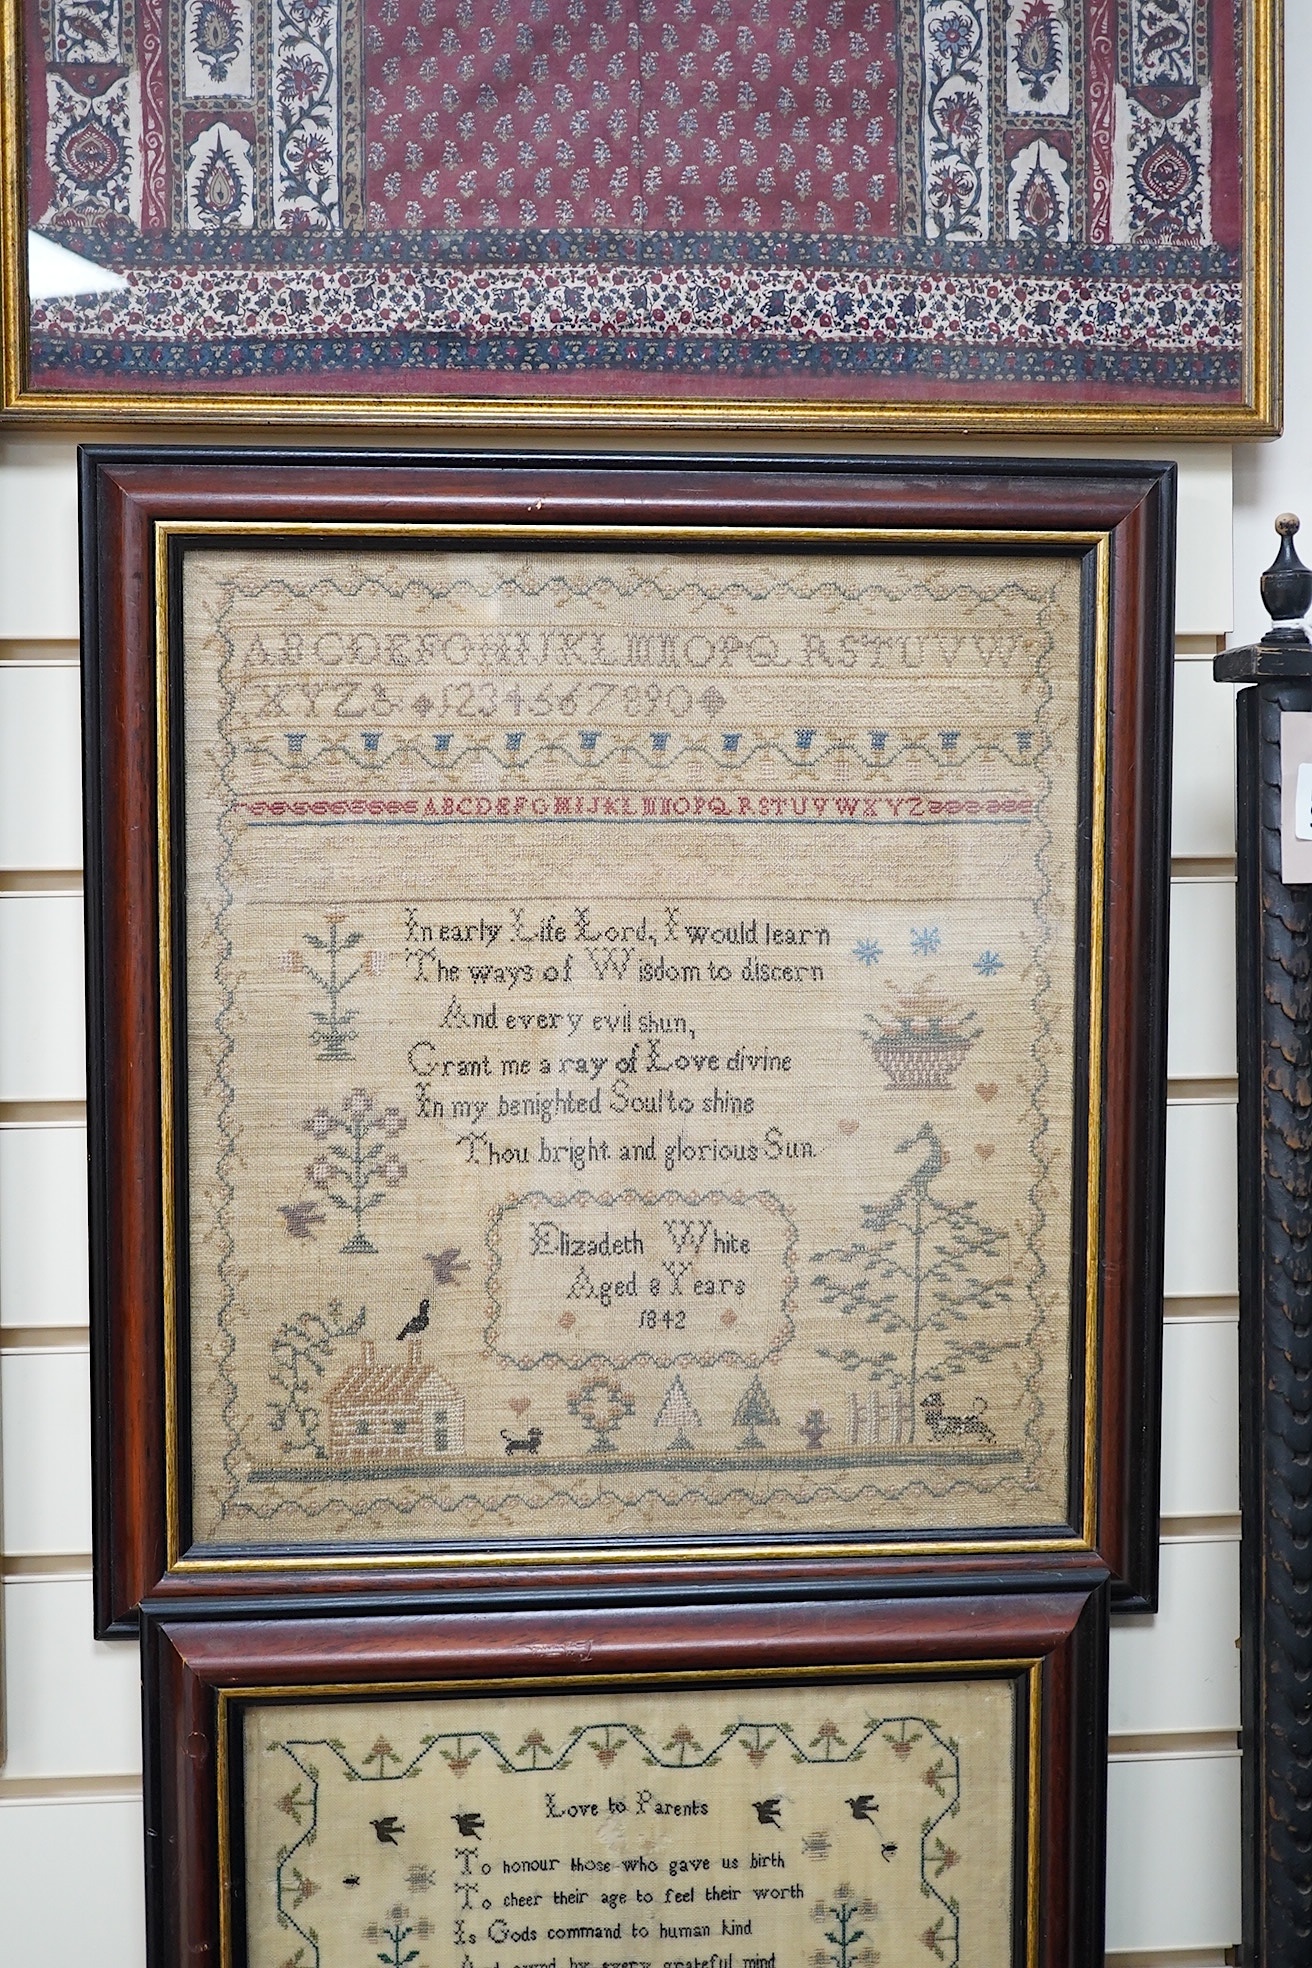 ABCDEFGHIJKLMNOPQRSTUVW
XYZ& 1234567890
ABCDEFGHIJKLMNOPQRSTUVWXYZ
In early Life Lord, I would learn
The ways of Wisdom to discern
And every evil shun,
Grant me a ray of Love divine
In my benighted Soul to shine
Thou bright and glorious Sun
Elizadeth White
Aged 8 Years
1842
Love to Parents
To honour those who gave us birth
To cheer their age to feel their worth
Is Gods command to human kind
And ownd by every grateful mind